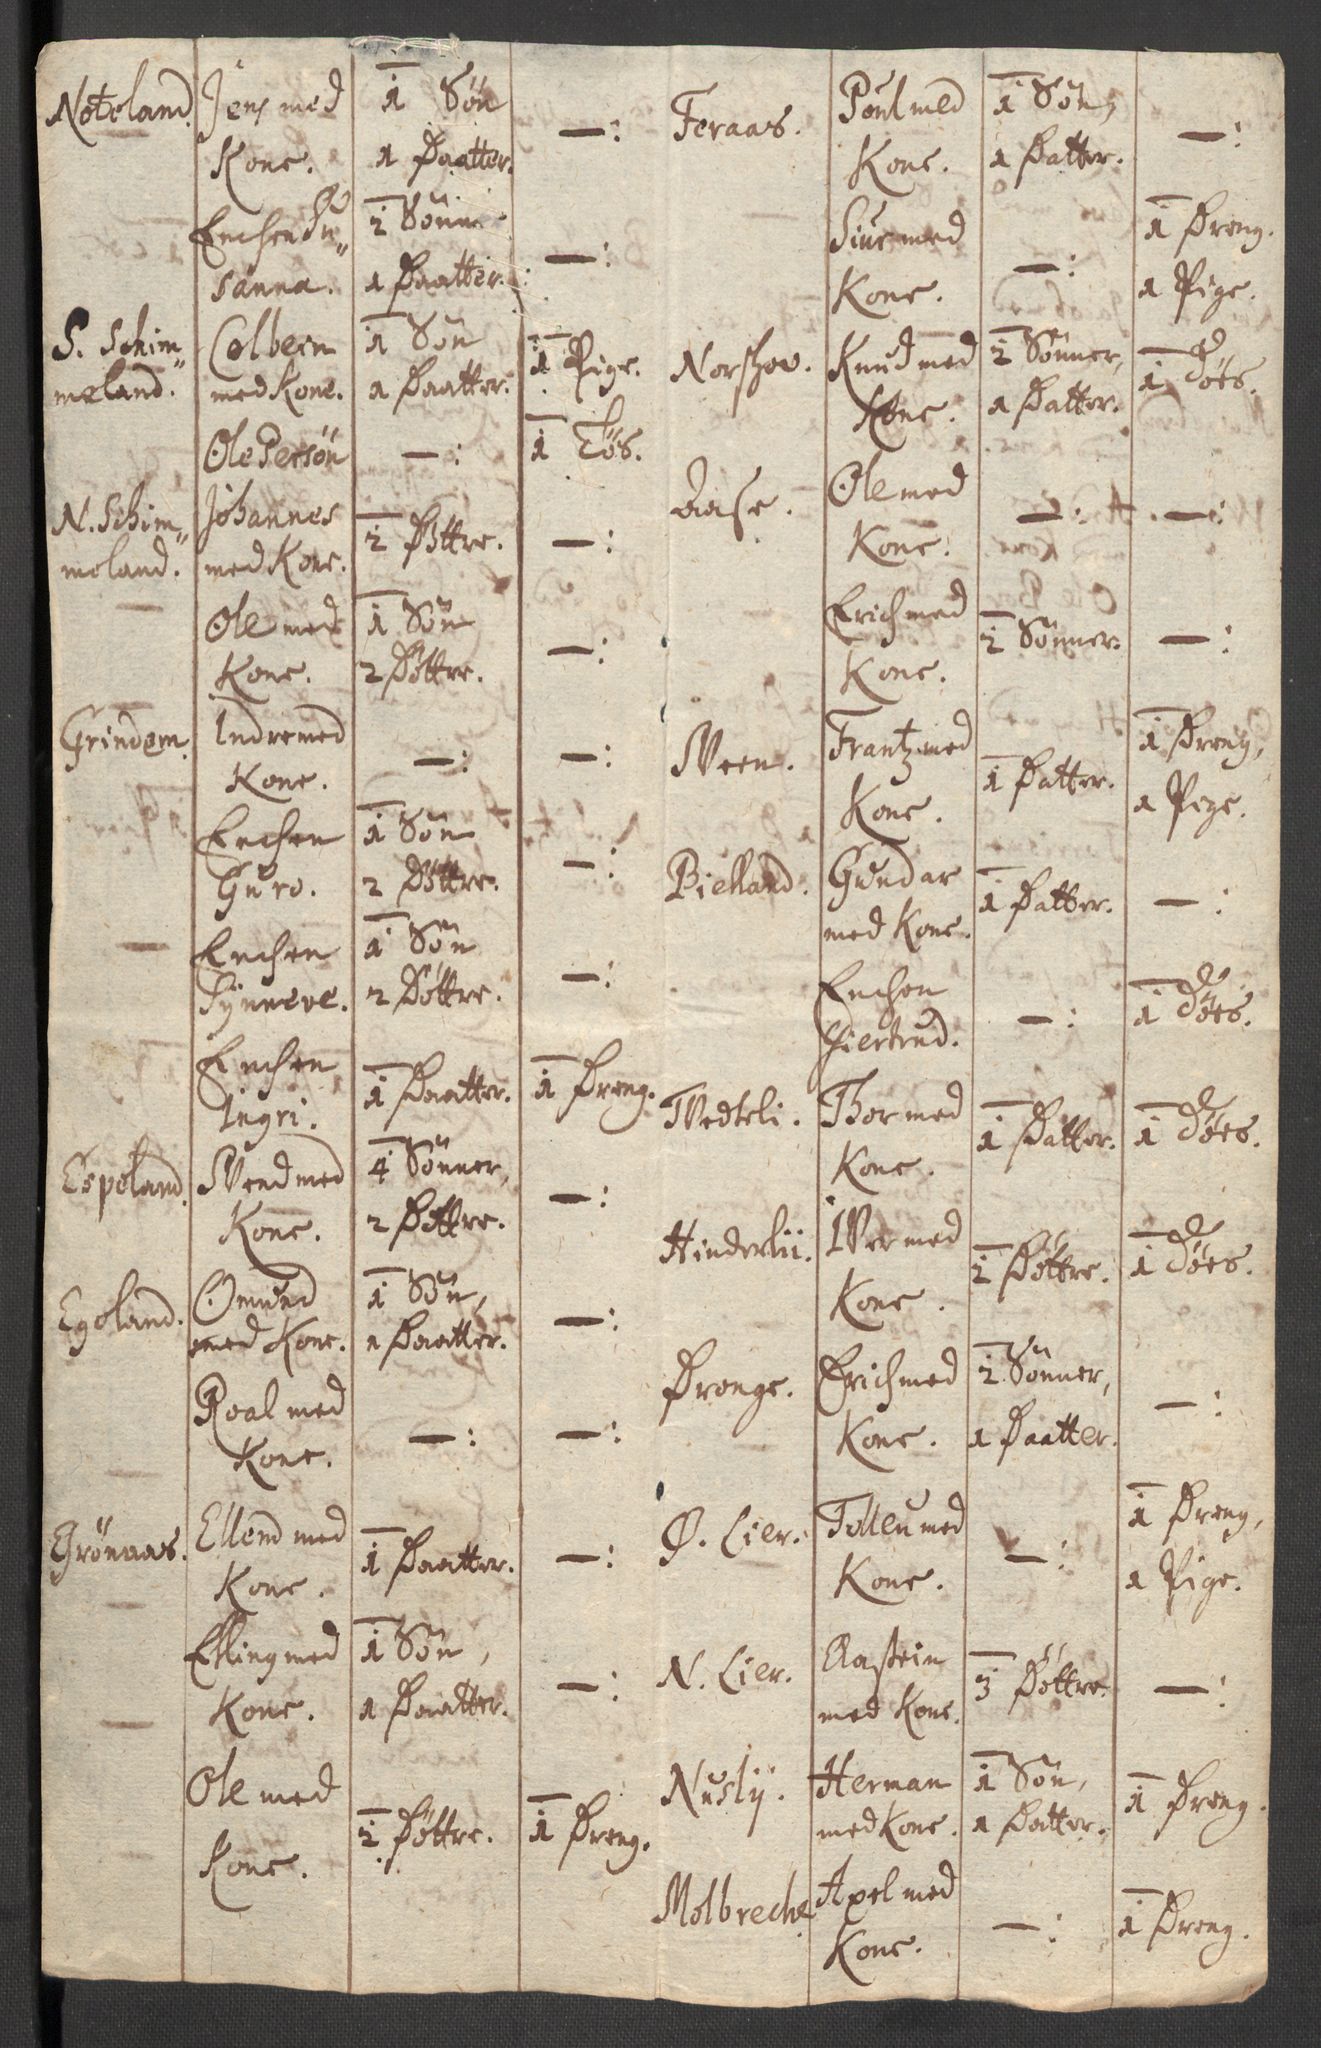 Noteland. Jens med 1 Søn —:
Kone. 1 Daatter.
Enchen Su„ 2 Sønn —:
sanna. 1 Daatter.
S. Schim„ Colbern 1 Søn 1 Pige.
meland. med Kone. 1 Daatter.
Ole Persøn —: 1 Tøs.
N. Schim„ Johannes 2 Døttre. —:
meland. med Kone.
— Ole med 1 Søn —:
Kone. 2 Døttre.
Grindem. Indre med —: —:
Kone.
Enchen 1 Søn —:
Guro. 2 Døttre.
— Enchen 1 Søn —:
Synneve. 2 Døttre.
Enchen 1 Daatter. 1 Dreng.
Ingri.
Espeland. Svend med 4 Sønner, —:
Kone. 2 Døttre.
Egeland. Omund 1 Søn, —:
med Kone. 1 Daatter.
Roal med —: —:
Kone.
Grönaas. Ellend med 1 Daatter. —:
Kone.
— Elling med 1 Søn, —:
Kone. 1 Daatter.
— Ole med 2 Døttre. 1 Dreng.
Kone.
Feraas. Poul med 1 Søn, —:
Kone. 1 Datter.
Siur med —: 1 Dreng.
Kone. 1 Pige.
Norshov. Knud med 2 Sønner, 1 Døes.
Kone. 1 Datter.
Aase. Ole med —: —:
Kone.
Erich med 2 Sønner. —:
Kone.
Sveen. Frantz med 1 Datter. 1 Dreng,
Kone. 1 Pige.
Bielland. Gundar 1 Datter. —:
med Kone.
Enchen —: 1 Døes.
Giertrud.
Tvedteli. Thor med 1 Datter. 1 Døes.
Kone.
Hinderlii. Iver med 2 Døttre. 1 Døes.
Kone.
Drange. Erich med 2 Sønner, —:
Kone. 1 Daatter.
Ø. Lier. Tolleu med —: 1 Dreng,
Kone. 1 Pige.
N. Lier. Aastein 3 Døttre. —:
med Kone.
Nuslij. Herman 1 Søn, 1 Dreng.
med Kone. 1 Datter.
Molbreche. Axel med —: 1 Dreng.
Kone.